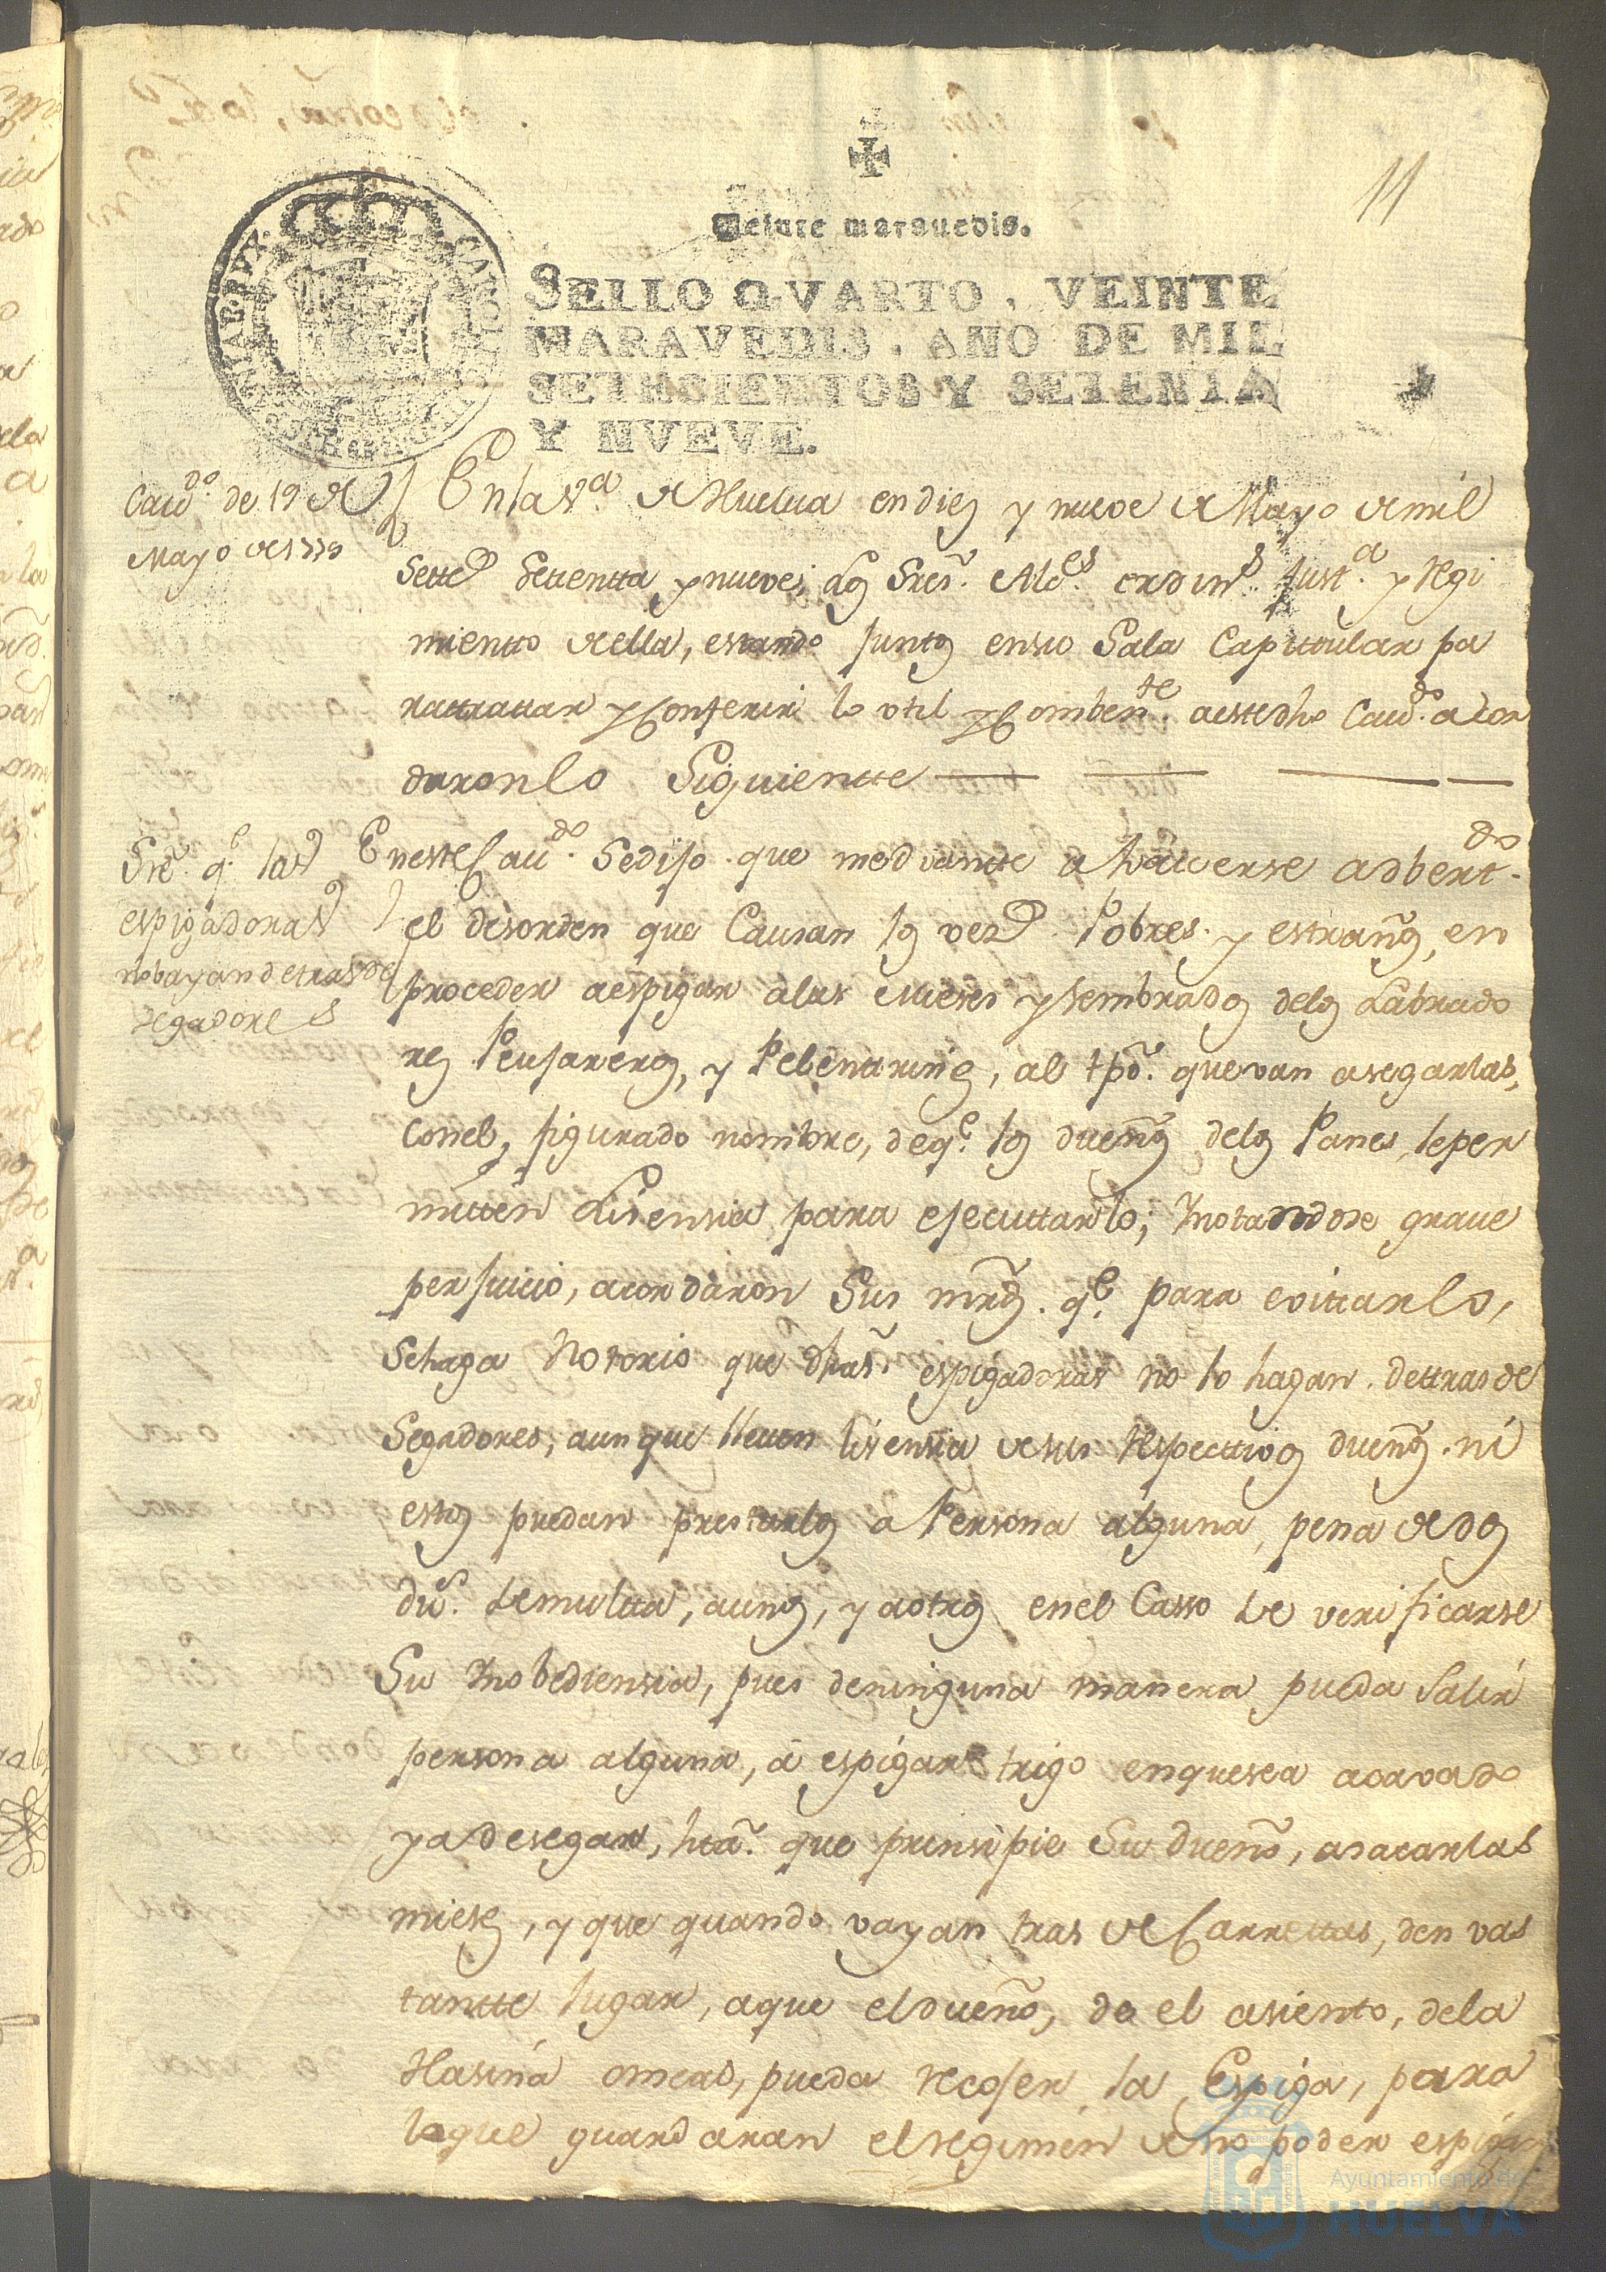 11
Veinte marauedis.
SELLO QVARTO, VEINTE
MARAVEDIS, AÑO DE MIL
SETECIENTOS Y SETENTA
Y NVEVE.
Caudo. de 19 de
Mayo de 1779
En la Va. de Huelua en diez y nueve de Mayo de mil
settes settentta y nueve; los Sres. Alces. ordins. Justa. y Regi
miento de ella, estando juntos en su Sala Capittular pa
ra trattar y Conferir lo vtil y Combente. a este dho Caudo. acor
daron lo Siguientte
Sre. qe. las
espigadoras
no bayan detras de
segadores
En este Caudo. se dijo que mediantte a haverse adbertdo.
el desorden que Causan los vezs. Pobres y estraños, en
proceder a espigar a las mieses y sembrados de los Labrado
res Peujareros, y Pelentrines, al tpo. que van a segarlas,
con el, figurado nombre, de qe. los dueños de los Panes, le per
mitten Lisensia para ejecuttarlo; Y notandose graue
perjuicio, acordaron Sus mrds. qe. para evittarlo,
se haga Notorio que dhas. espigadoras no lo hagan dettras de
Segadores, aunque lleuen lisensia de sus respecttivos dueños ni
estos puedan prestarlos a Persona alguna, pena de dos
dus. de multta, a unos, y a otros en el Casso de verificarse
Su Ynobediensia, pues de ninguna manera pueda Salir
persona alguna, a espigar trigo en que sea acavado
ya de segar, hta. que prinsipie Su dueño, a sacar las
mieses, y que quando vayan tras de Carrettas, den vas
tantte lugar, a que el dueño, de el asiento, de la
Hasina omeas, pueda recojer la Espiga, para
lo que guardaran el regimen de no poder espigar
Ayuntamiento de
HUELVA